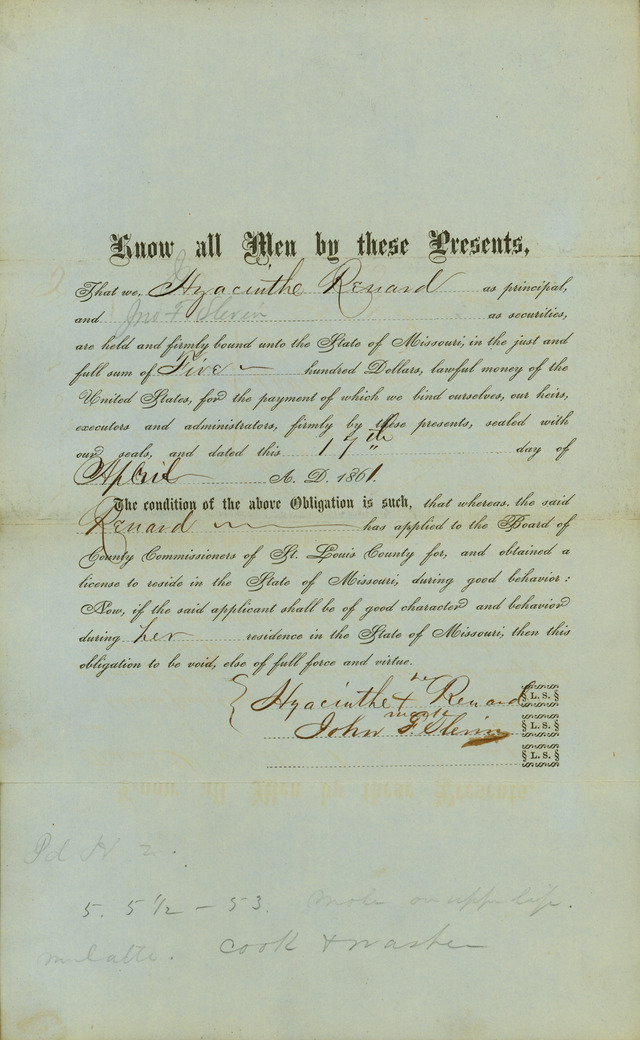 Know all Men by these Presents,
That we, Hyacinthe Renard as principal,
and Jno F Slevin as securities,
are held and firmly bound unto the State of Missouri, in the just and
full sum of Five hundred Dollars, lawful money of the
United States, for the payment of which we bind ourselves, our heirs,
executors and administrators, firmly by these presents, sealed with
our seals, and dated this 17th day of
April A. D. 1861.
The condition of the above Obligation is such, that whereas, the said
Renard has applied to the Board of
County Commissioners of St. Louis County for, and obtained a
license to reside in the State of Missouri, during good behavior:
Now, if the said applicant shall be of good character and behavior
during her residence in the State of Missouri, then this
obligation to be void, else of full force and virtue.
her
Hyacinthe + Renard L. S.
mark
John F Slevin L. S.
L. S.
Pd 2.
5. 5 1/2 – 53. mole on upper lip.
mulatto. cook & washer